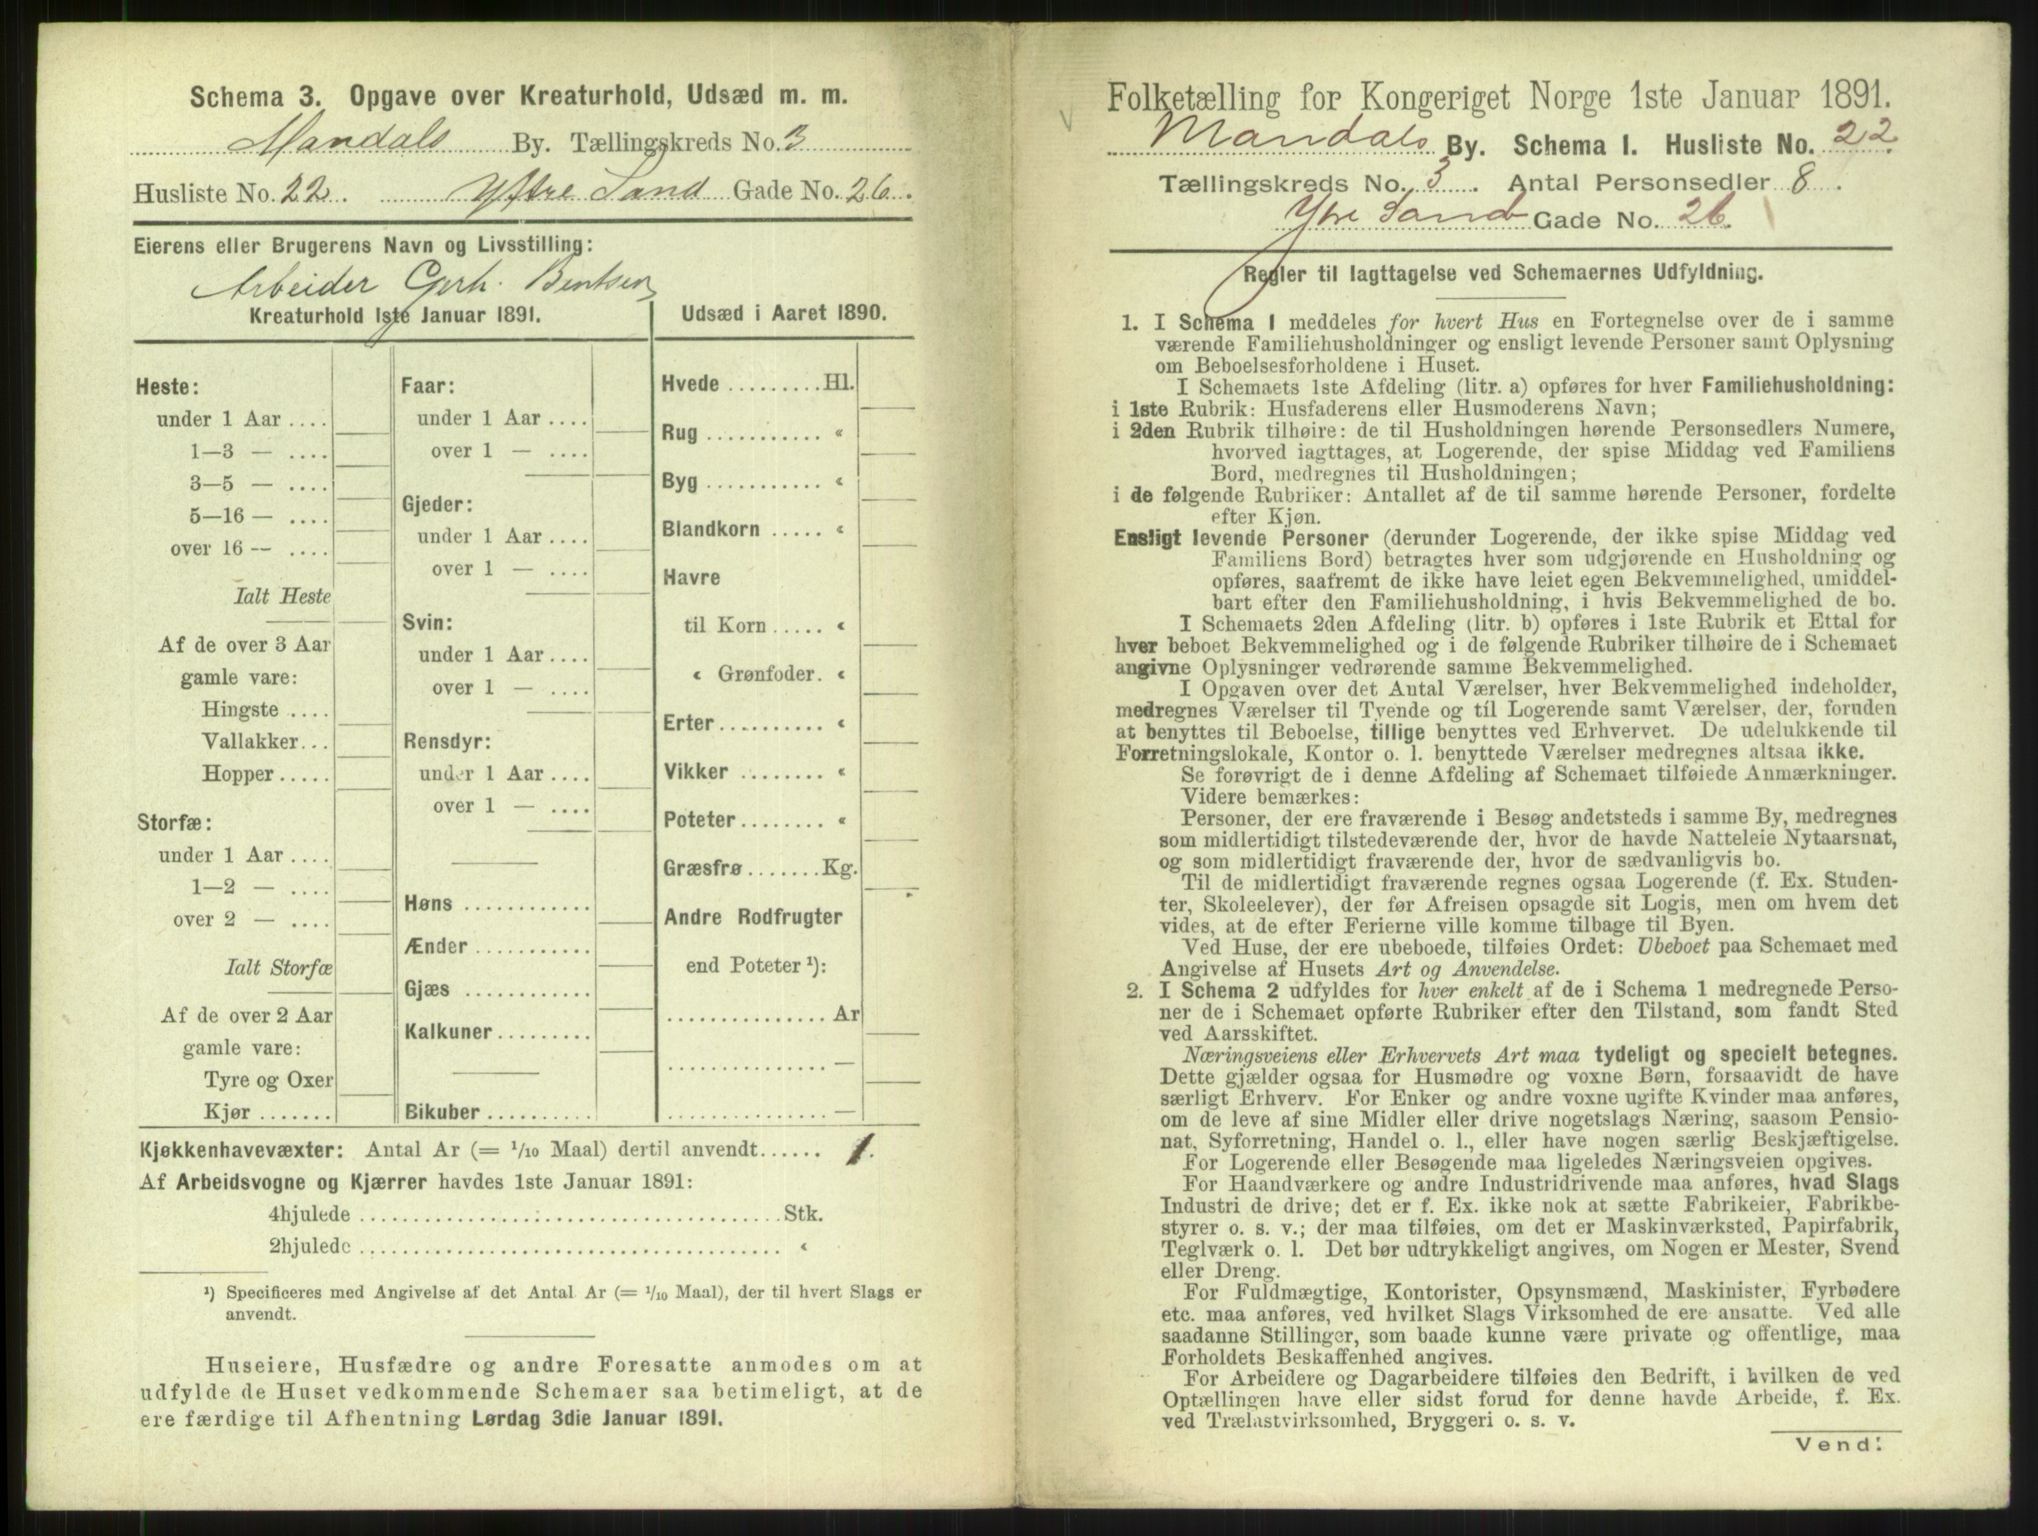 Schema 3. Opgave over Kreaturhold, Udsæd m. m.
Mandals By. Tællingskreds No. 3
Husliste No. 22. Yttre Sand Gade No. 26.
Eierens eller Brugerens Navn og Livsstilling:
Arbeider Gerh. Bentsen
Kreaturhold 1ste Januar 1891.
Heste:
under 1 Aar ....
1—3 — ....
3—5 — ....
5—16 — ....
over 16 — ....
Ialt Heste
Af de over 3 Aar
gamle vare:
Hingste ....
Vallakker...
Hopper .....
Storfæ:
under 1 Aar ....
1—2 — ....
over 2 — ....
Ialt Storfæ
Af de over 2 Aar
gamle vare:
Tyre og Oxer
Kjør .......
Faar:
under 1 Aar ....
over 1 — ....
Gjeder:
under 1 Aar ....
over 1 — ....
Svin:
under 1 Aar ....
over 1 — ....
Rensdyr:
under 1 Aar ....
over 1 — ....
Høns ............
Ænder ...........
Gjæs ............
Kalkuner .........
Bikuber ..........
Udsæd i Aaret 1890.
Hvede ......... Hl.
Rug ........... «
Byg ........... «
Blandkorn ..... «
Havre
til Korn ..... «
« Grønfoder. «
Erter ......... «
Vikker ........ «
Poteter ........ «
Græsfrø ....... Kg.
Andre Rodfrugter
end Poteter ¹):
............... Ar
............... —
............... —
Kjøkkenhavevæxter: Antal Ar (= 1/10 Maal) dertil anvendt...... 1.
Af Arbeidsvogne og Kjærrer havdes 1ste Januar 1891:
4hjulede ........................................ Stk.
2hjulede ........................................ «
¹) Specificeres med Angivelse af det Antal Ar (= 1/10 Maal), der til hvert Slags er
anvendt.
Huseiere, Husfædre og andre Foresatte anmodes om at
udfylde de Huset vedkommende Schemaer saa betimeligt, at de
ere færdige til Afhentning Lørdag 3die Januar 1891.
Folketælling for Kongeriget Norge 1ste Januar 1891.
Mandals By. Schema I. Husliste No. 22.
Tællingskreds No. 3. Antal Personsedler 8.
Ytre Sand Gade No. 26.
Regler til Iagttagelse ved Schemaernes Udfyldning.
1. I Schema 1 meddeles for hvert Hus en Fortegnelse over de i samme
værende Familiehusholdninger og ensligt levende Personer samt Oplysning
om Beboelsesforholdene i Huset.
I Schemaets 1ste Afdeling (litr. a) opføres for hver Familiehusholdning:
i 1ste Rubrik: Husfaderens eller Husmoderens Navn;
i 2den Rubrik tilhøire: de til Husholdningen hørende Personsedlers Numere,
hvorved iagttages, at Logerende, der spise Middag ved Familiens
Bord, medregnes til Husholdningen;
i de følgende Rubriker: Antallet af de til samme hørende Personer, fordelte
efter Kjøn.
Ensligt levende Personer (derunder Logerende, der ikke spise Middag ved
Familiens Bord) betragtes hver som udgjørende en Husholdning og
opføres, saafremt de ikke have leiet egen Bekvemmelighed, umiddel-
bart efter den Familiehusholdning, i hvis Bekvemmelighed de bo.
I Schemaets 2den Afdeling (litr. b) opføres i 1ste Rubrik et Ettal for
hver beboet Bekvemmelighed og i de følgende Rubriker tilhøire de i Schemaet
angivne Oplysninger vedrørende samme Bekvemmelighed.
I Opgaven over det Antal Værelser, hver Bekvemmelighed indeholder,
medregnes Værelser til Tyende og til Logerende samt Værelser, der, foruden
at benyttes til Beboelse, tillige benyttes ved Erhvervet. De udelukkende til
Forretningslokale, Kontor o. l. benyttede Værelser medregnes altsaa ikke.
Se forøvrigt de i denne Afdeling af Schemaet tilføiede Anmærkninger.
Videre bemærkes:
Personer, der ere fraværende i Besøg andetsteds i samme By, medregnes
som midlertidigt tilstedeværende der, hvor de havde Natteleie Nytaarsnat,
og som midlertidigt fraværende der, hvor de sædvanligvis bo.
Til de midlertidigt fraværende regnes ogsaa Logerende (f. Ex. Studen-
ter, Skoleelever), der før Afreisen opsagde sit Logis, men om hvem det
vides, at de efter Ferierne ville komme tilbage til Byen.
Ved Huse, der ere ubeboede, tilføies Ordet: Ubeboet paa Schemaet med
Angivelse af Husets Art og Anvendelse.
2. I Schema 2 udfyldes for hver enkelt af de i Schema 1 medregnede Perso-
ner de i Schemaet opførte Rubriker efter den Tilstand, som fandt Sted
ved Aarsskiftet.
Næringsveiens eller Erhvervets Art maa tydeligt og specielt betegnes.
Dette gjælder ogsaa for Husmødre og voxne Børn, forsaavidt de have
særligt Erhverv. For Enker og andre voxne ugifte Kvinder maa anføres,
om de leve af sine Midler eller drive nogetslags Næring, saasom Pensio-
nat, Syforretning, Handel o. l., eller have nogen særlig Beskjæftigelse.
For Logerende eller Besøgende maa ligeledes Næringsveien opgives.
For Haandværkere og andre Industridrivende maa anføres, hvad Slags
Industri de drive; det er f. Ex. ikke nok at sætte Fabrikeier, Fabrikbe-
styrer o. s. v.; der maa tilføies, om det er Maskinværksted, Papirfabrik,
Teglværk o. l. Det bør udtrykkeligt angives, om Nogen er Mester, Svend
eller Dreng.
For Fuldmægtige, Kontorister, Opsynsmænd, Maskinister, Fyrbødere
etc. maa anføres, ved hvilket Slags Virksomhed de ere ansatte. Ved alle
saadanne Stillinger, som baade kunne være private og offentlige, maa
Forholdets Beskaffenhed angives.
For Arbeidere og Dagarbeidere tilføies den Bedrift, i hvilken de ved
Optællingen have eller sidst forud for denne havde Arbeide, f. Ex.
ved Trælastvirksomhed, Bryggeri o. s. v.
Vend: